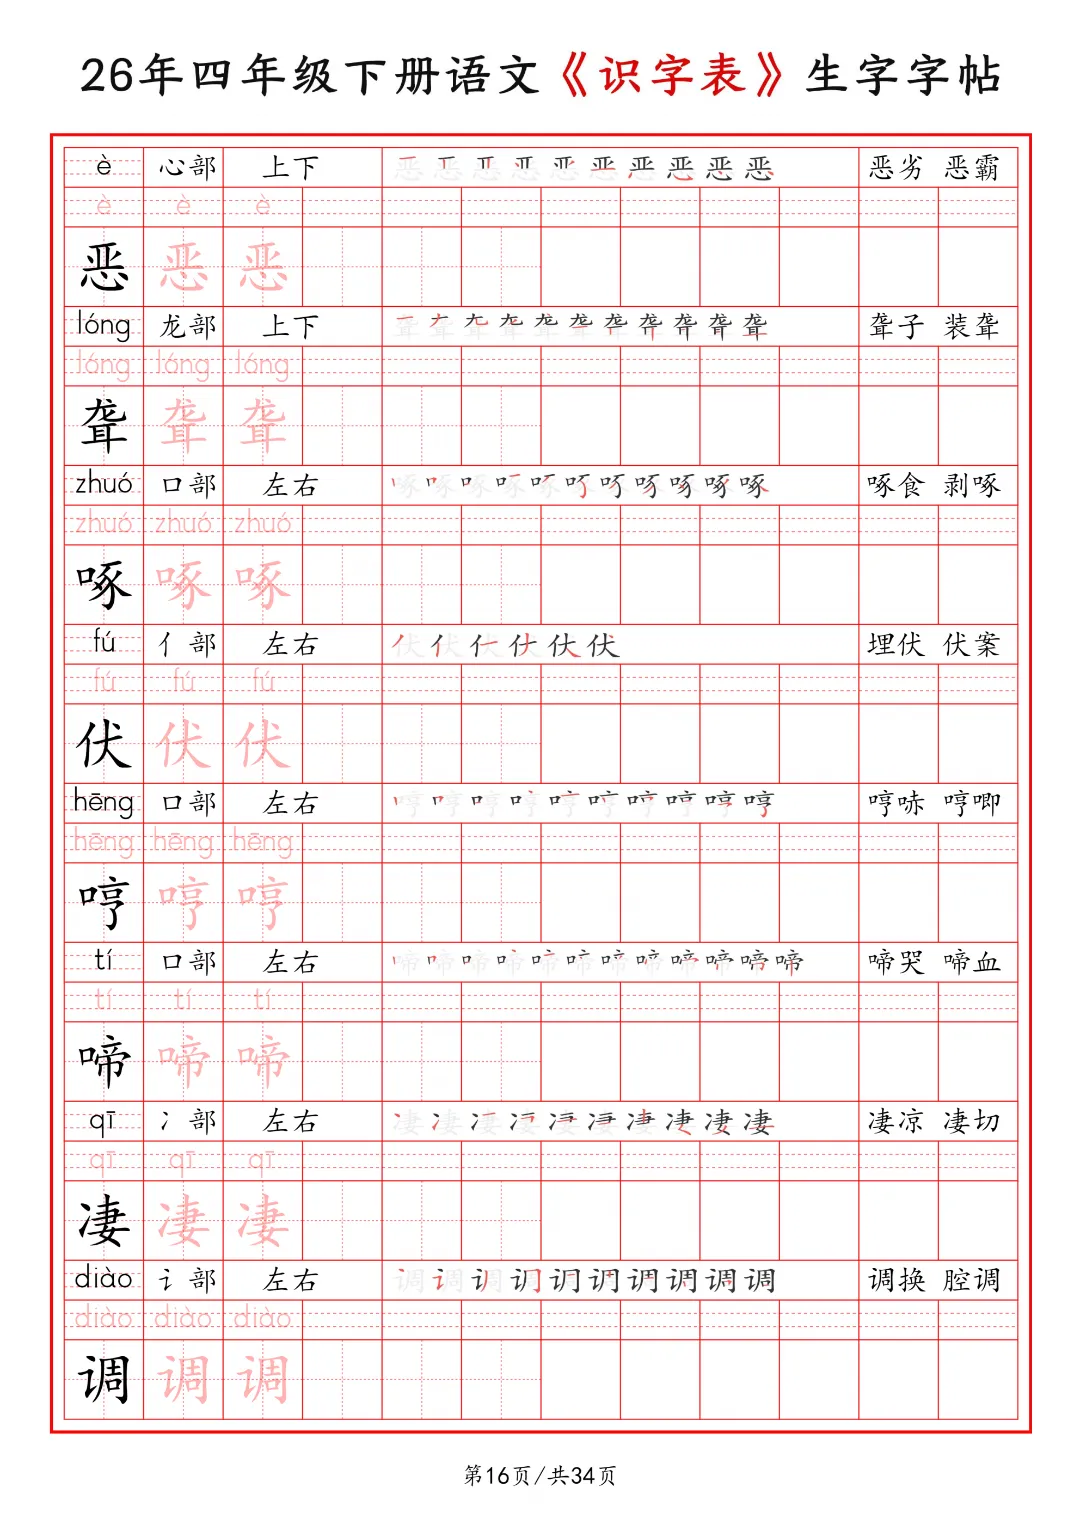 26年四年级下册语文《识字表》生字字帖
è 心部 上下 恶恶恶恶恶恶恶恶恶恶 恶劣 恶霸
è è è
恶 恶 恶
lóng 龙部 上下 聋聋聋聋聋聋聋聋聋聋聋 聋子 装聋
lóng lóng lóng
聋 聋 聋
zhuó 口部 左右 啄啄啄啄啄啄啄啄啄啄啄 啄食 剥啄
zhuó zhuó zhuó
啄 啄 啄
fú 亻部 左右 伏伏伏伏伏伏 埋伏 伏案
fú fú fú
伏 伏 伏
hēng 口部 左右 哼哼哼哼哼哼哼哼哼哼 哼哧 哼唧
hēng hēng hēng
哼 哼 哼
tí 口部 左右 啼啼啼啼啼啼啼啼啼啼啼啼 啼哭 啼血
tí tí tí
啼 啼 啼
qī 冫部 左右 凄凄凄凄凄凄凄凄凄凄 凄凉 凄切
qī qī qī
凄 凄 凄
diào 讠部 左右 调调调调调调调调调调 调换 腔调
diào diào diào
调 调 调
第16页/共34页